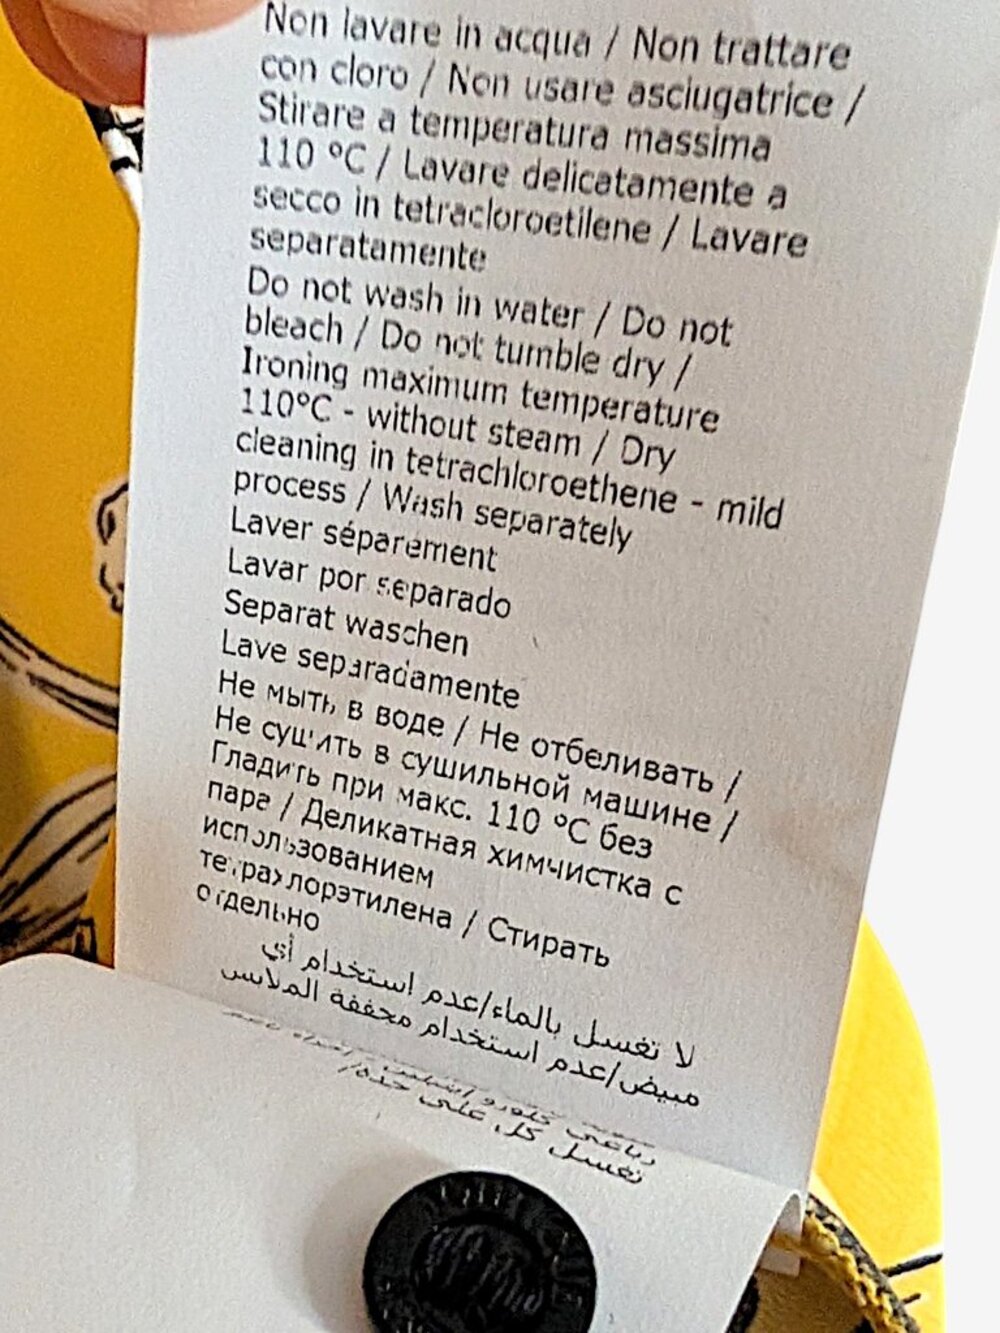 Non lavare in acqua / Non trattare
con cloro / Non usare asciugatrice /
Stirare a temperatura massima
110 °C / Lavare delicatamente a
secco in tetracloroetilene / Lavare
separatamente
Do not wash in water / Do not
bleach / Do not tumble dry /
Ironing maximum temperature
110°C - without steam / Dry
cleaning in tetrachloroethene - mild
process / Wash separately
Laver séparement
Lavar por separado
Separat waschen
Lave separadamente
Не мыть в воде / Не отбеливать /
Не сушить в сушильной машине /
Гладить при макс. 110 °C без
пара / Деликатная химчистка с
использованием
тетрахлорэтилена / Стирать
отдельно
لا تغسل بالماء/عدم استخدام أي
مبيض/عدم استخدام مجففة الملابس
رباعي كلورو
تغسل كل على حدة/